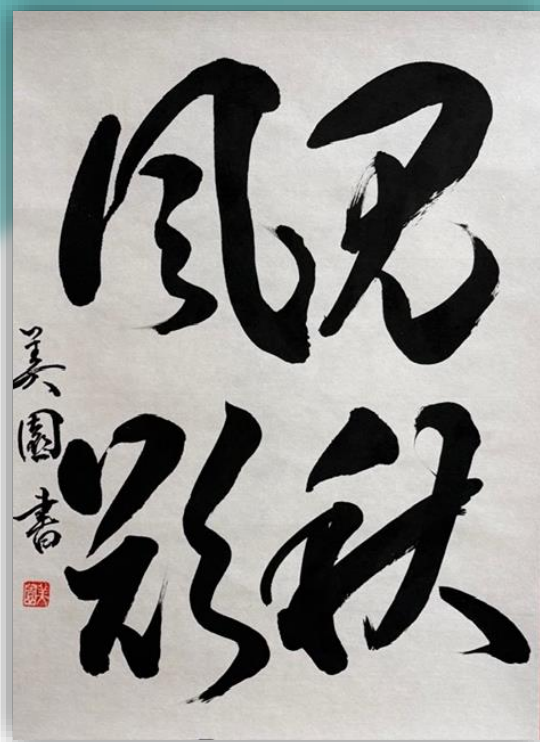 見秋
風影
美園書